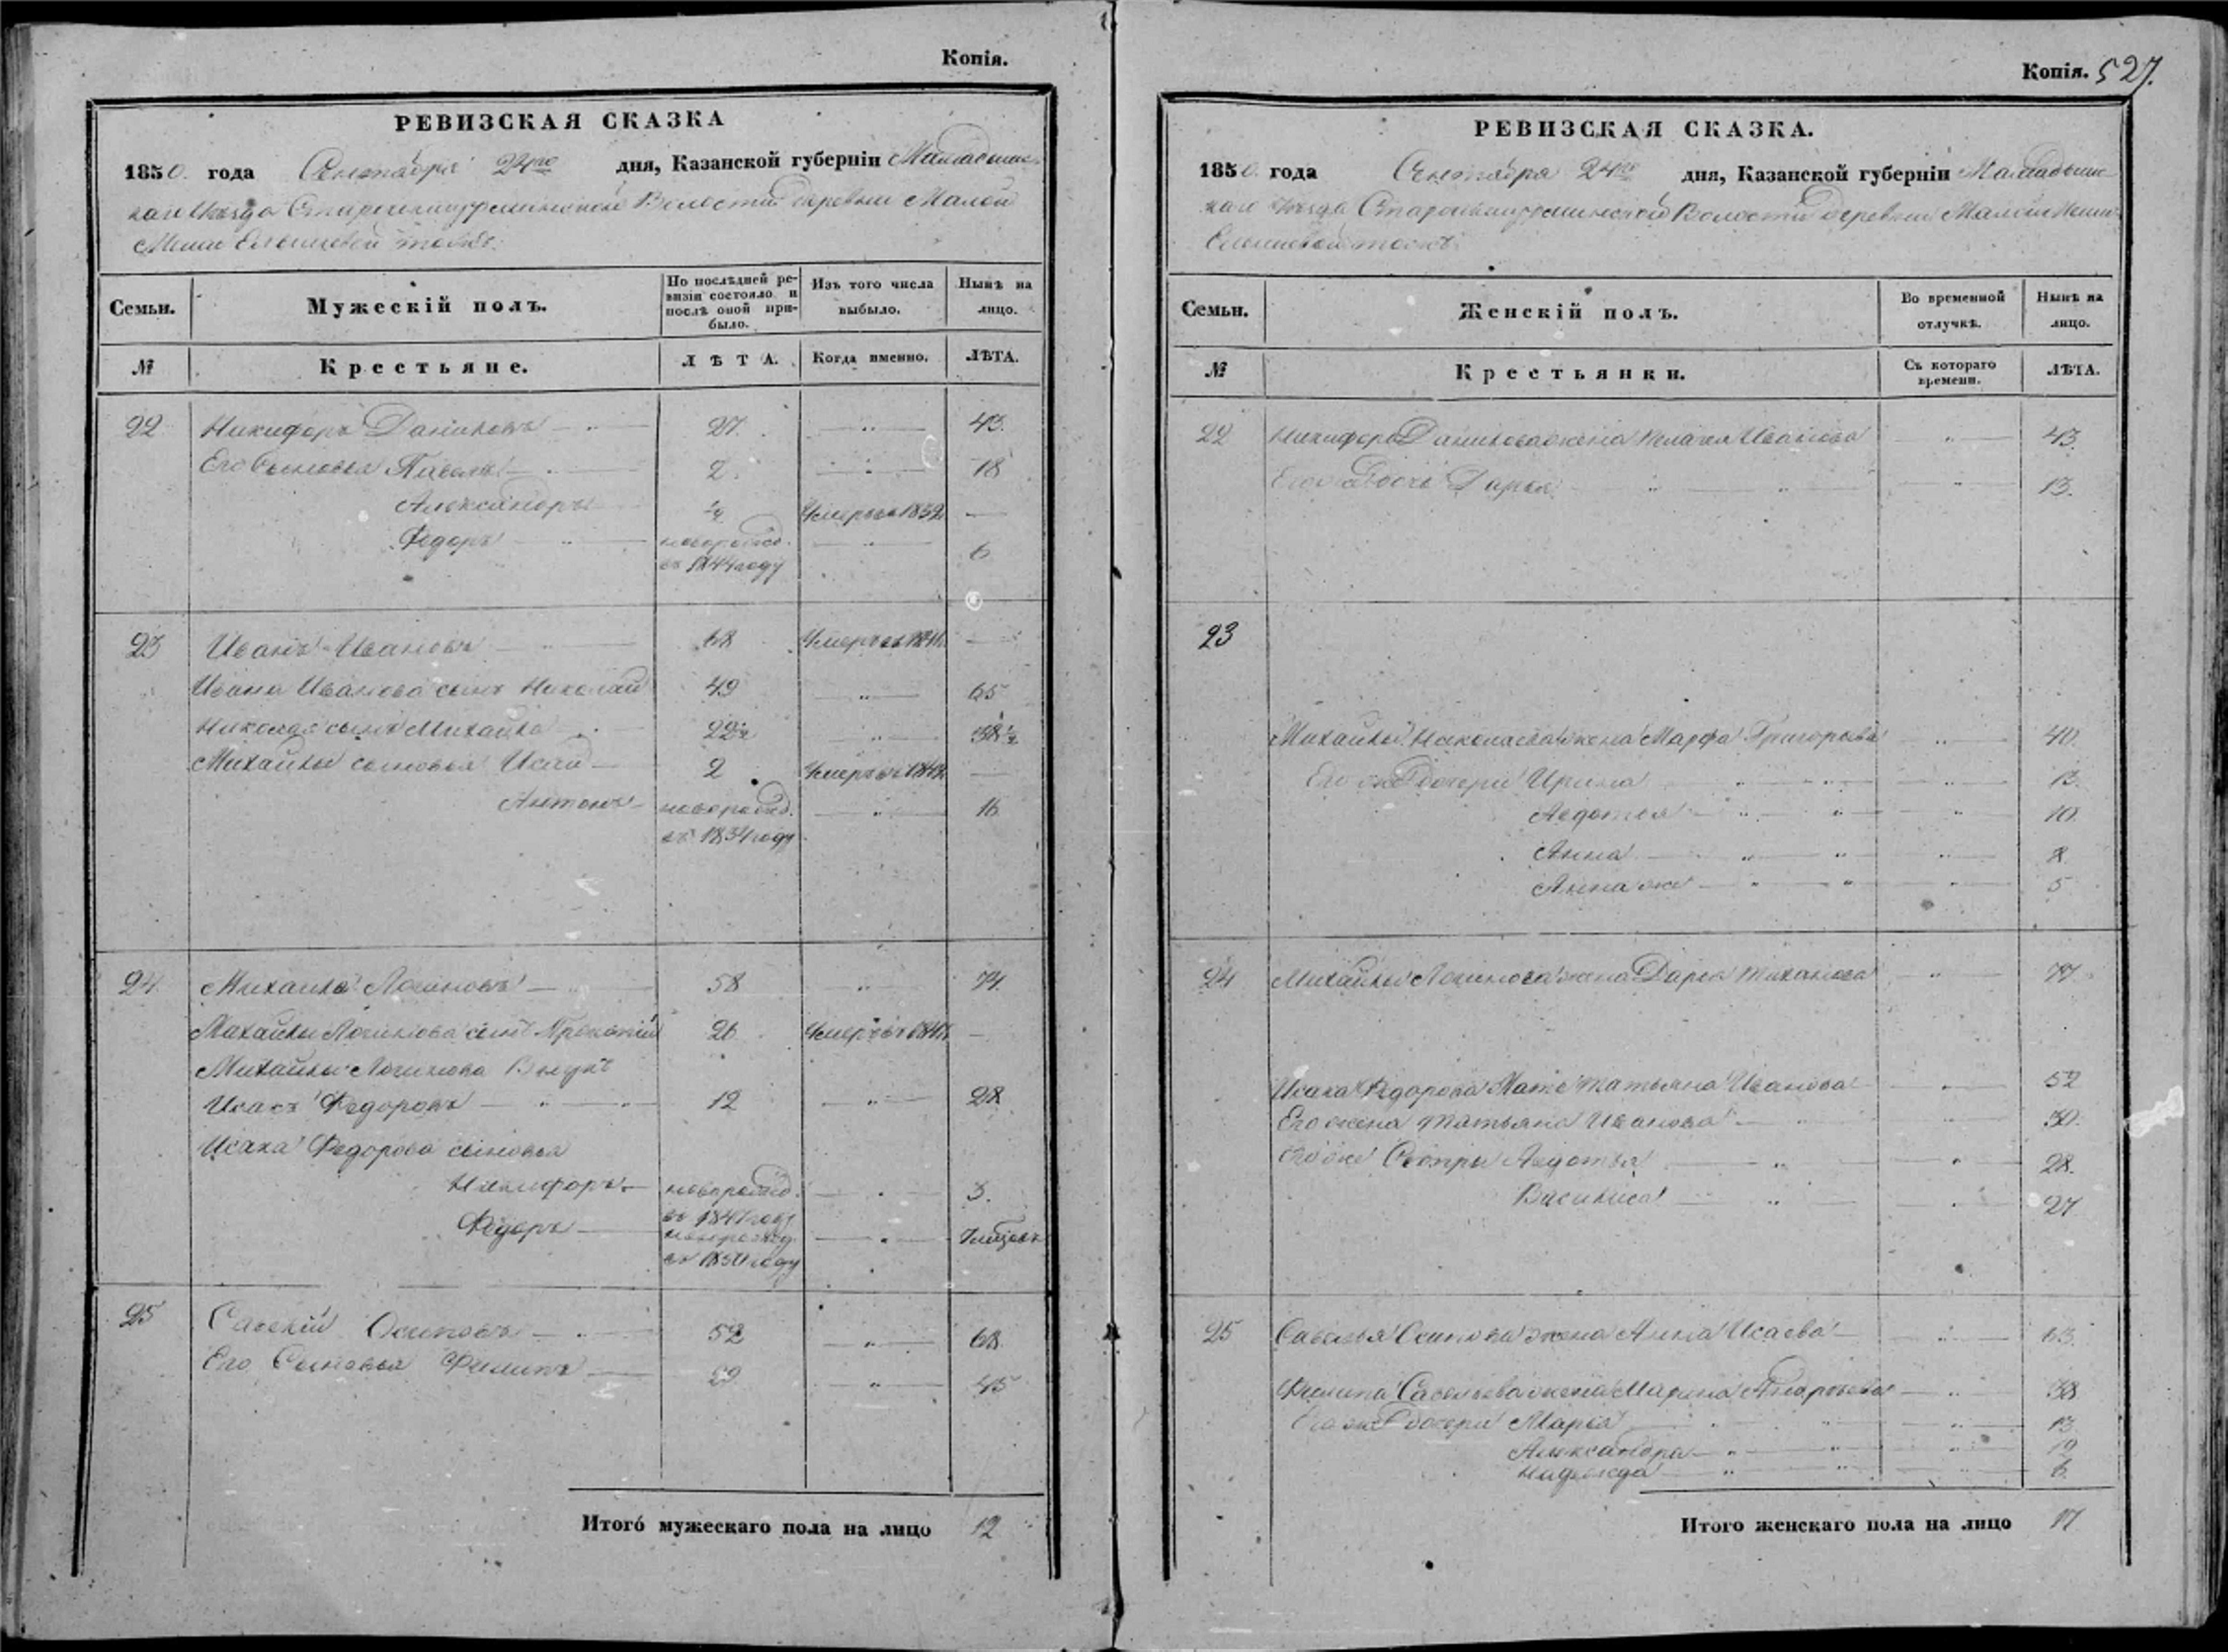 Копія.
РЕВИЗСКАЯ СКАЗКА
1850. года Сентября 24го дня, Казанской губерніи Мамадыш-
скаго Уѣзда Волости Деревни Малой
Меши
Семьи. Мужескій полъ. По послѣдней ре-визіи состояло и послѣ оной при-было. Изъ того числа выбыло. Нынѣ на лицо.
№ Крестьяне. ЛѢТА. Когда именно. ЛѢТА.
22 Никифоръ Даниловъ 27. 43.
Его Сыновья Павелъ 2. 18
Александръ Умеръ въ 1832 —
Федоръ новорожд. 6
въ 1844 году
23 Иванъ Ивановъ 68 Умеръ въ —
Ивана Иванова сынъ Николай 49 65
Николая сынъ Михайла 22½ 38½
Михайлы сыновья Исай 2 Умеръ въ —
Антонъ новорожд. 16
въ 1834 году
24 Михайла Логиновъ 58 74.
Михайлы Логинова сынъ Прокопій 26 Умеръ въ —
Михайлы Логинова
Исакъ Федоровъ 12 28
Исака Федорова сыновья
Никифоръ новорожд. 3.
въ 1847 году
Федоръ новорожд.
въ 1850 году
25 Савелій Осиповъ 52 68.
Его Сыновья Филипъ 29 45
Итого мужескаго пола на лицо 12
Копія. 527.
РЕВИЗСКАЯ СКАЗКА.
1850. года Сентября 24го дня, Казанской губерніи Мамадыш-
скаго Уѣзда Волости Деревни Малой Меши
Семьи. Женскій полъ. Во временной отлучкѣ. Нынѣ на лицо.
№ Крестьянки. Съ котораго времени. ЛѢТА.
22 Никифора Данилова жена Иванова 43.
Его же Дочь Дарья 13.
23
Михайлы Николаева жена Марфа Григорьева 40.
Его же дочери Ирина 13.
Авдотья 10.
Анна 8
Анна же 5
24 Михайлы Логинова жена Дарья
Исака Федорова Мать Татьяна Иванова 52
Его жена Татьяна Иванова 30.
Его же Сестры Авдотья 28.
Василиса 27
25 Савелья Осипова жена Анна Исаева 63.
Филипа Савельева жена Марина Андреева 38
Его же дочери Марья 13
Александра
Надежда 6.
Итого женскаго пола на лицо 17